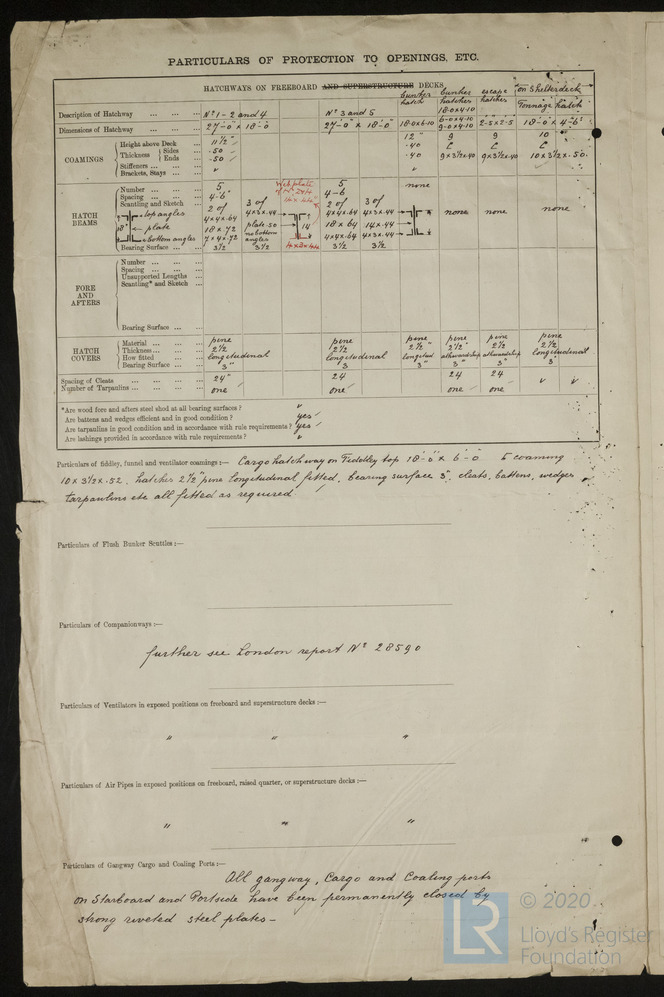 PARTICULARS OF PROTECTION TO OPENINGS, ETC.
HATCHWAYS ON FREEBOARD AND SUPERSTRUCTURE DECKS
bunker hatch
bunker hatches
escape hatches
on Shelterdeck
Tonnage hatch
Description of Hatchway ... ... ... Nº 1-2 and 4 Nº 3 and 5 18-0 x 4-10
Dimensions of Hatchway ... ... ... 27'-0" x 18-0 27'-0" x 18'-0" 18-0x6-10 6-0x4-10 9-0x4-10 2-5 x 2-5 18'-0 x 4'-6"
COAMINGS
Height above Deck ... 11½" 12" 9 9 10
Thickness Sides ... .50 .40
Ends ... .50 .40 9 x 3½ x 40 9x3½x.40 10 x 3½ x .50.
Stiffeners ... ... ...
Brackets, Stays ... ...
HATCH BEAMS
Number ... ... ... 5 5 none
Spacing ... ... ... 4-6" 4-6
Scantling and Sketch 2 of 3 of 2 of 3 of
top angles 4x4x.64 4x3x.44 4x4x.64 4x3x.44 none none none
18" plate 18 x .72 plate .50 14 18 x 64 14x.44
bottom angles 7x4x.72 no bottom angles 4x4x64 4x3x.44
Web plate of Nº 2 & 4
Bearing Surface ... ... 3½ 3½ 3½ 3½
FORE AND AFTERS
Number ... ... ...
Spacing ... ... ...
Unsupported Lengths ...
Scantling* and Sketch ...
Bearing Surface ... ...
HATCH COVERS
Material ... ... ... pine pine pine pine pine pine
Thickness ... ... ... 2½ 2½ 2½" 2½" 2½ 2½
How fitted ... ... longitudinal longitudinal longitud athwardship athwardship longitudinal
Bearing Surface ... ... 3" 3 3" 3" 3" 3"
Spacing of Cleats ... ... ... ... 24" 24 24 24
Number of Tarpaulins ... ... ... one one one one
*Are wood fore and afters steel shod at all bearing surfaces ?
Are battens and wedges efficient and in good condition ? yes
Are tarpaulins in good condition and in accordance with rule requirements ? yes
Are lashings provided in accordance with rule requirements ?
Particulars of fiddley, funnel and ventilator coamings :— Cargo hatchway on Fiddley top 18'-0" x 6'-0 coaming
10 x 3½ x .52. hatches 2½" pine longitudinal fitted, bearing surface 3", cleats, battens, wedges
tarpaulins etc all fitted as required
Particulars of Flush Bunker Scuttles :—
Particulars of Companionways :—
further see London report Nº 28590
Particulars of Ventilators in exposed positions on freeboard and superstructure decks :—
" " "
Particulars of Air Pipes in exposed positions on freeboard, raised quarter, or superstructure decks :—
" " "
Particulars of Gangway Cargo and Coaling Ports :—
All gangway, Cargo and Coaling ports
on Starboard and Portside have been permanently closed by
strong riveted steel plates —
© 2020
LR Lloyd's Register
Foundation